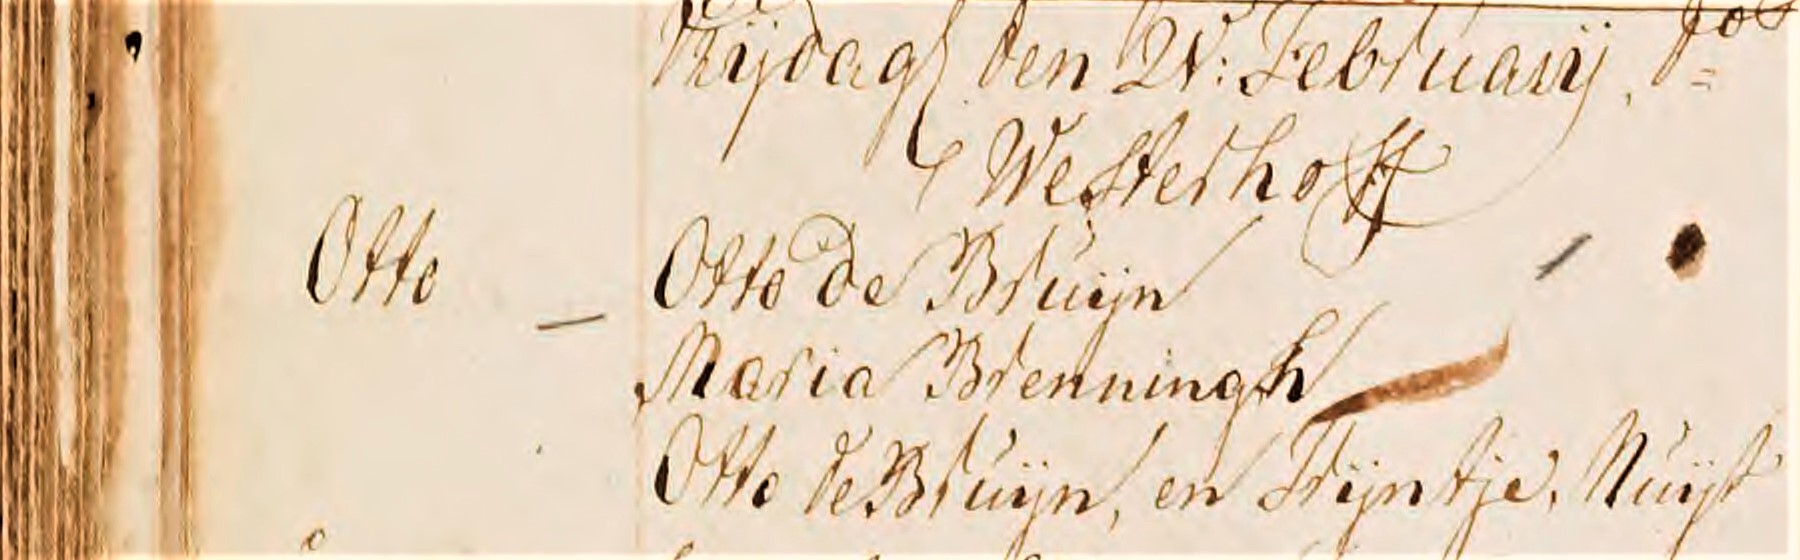 Vrijdag den 21: Februarij, Do=
Westerhoff
Otto
Otto de Bruijn
Maria Brenningh
Otto de Bruijn, en Trijntje Nuijt